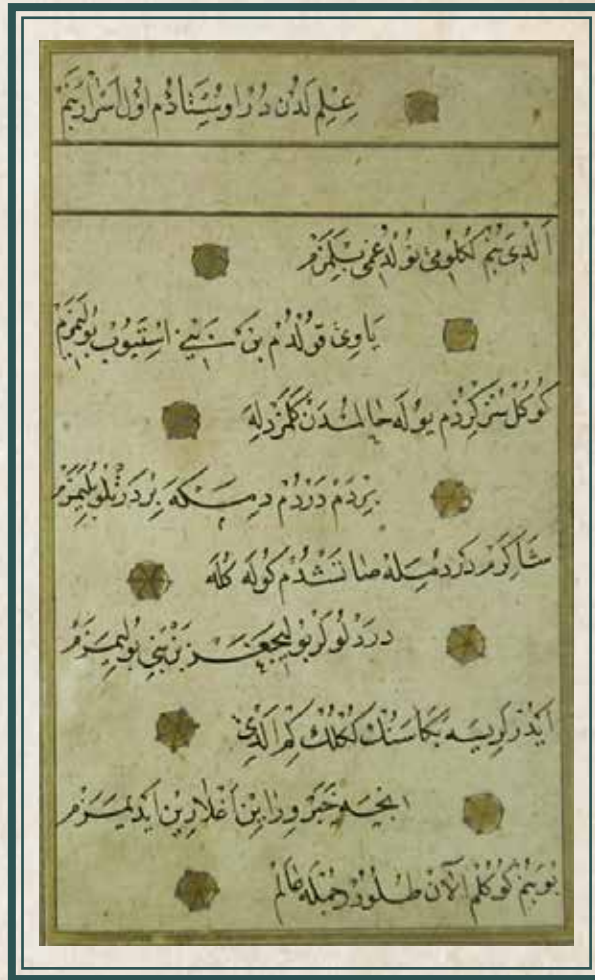 عِلِم لَدُن دُر اوسِتَاذُم اوْل اَسْرَار بَنَم
اَلدِى بَنُم كُكلومى نولدغمى بِلمَزم
ياوى قولدُم بن اسْتَيوب بوليمزم
كوكُلسُز كِردُم يوله حالمُدن كلمَز دِلَه
بِردَم دَردُم دِمِكَه بِر دَردلو بوليمزم
شاكِرَم دردُمِله صانشدُم كوله كله
دَردلولر بوليجغز بن بَنى بوليمزم
ايدر بكا سنك ككلك كِم الدى
نيجه خبر ويراين اغلارين ايديمَزم
بو بنم كوكلم الان طلودر جمله عالم